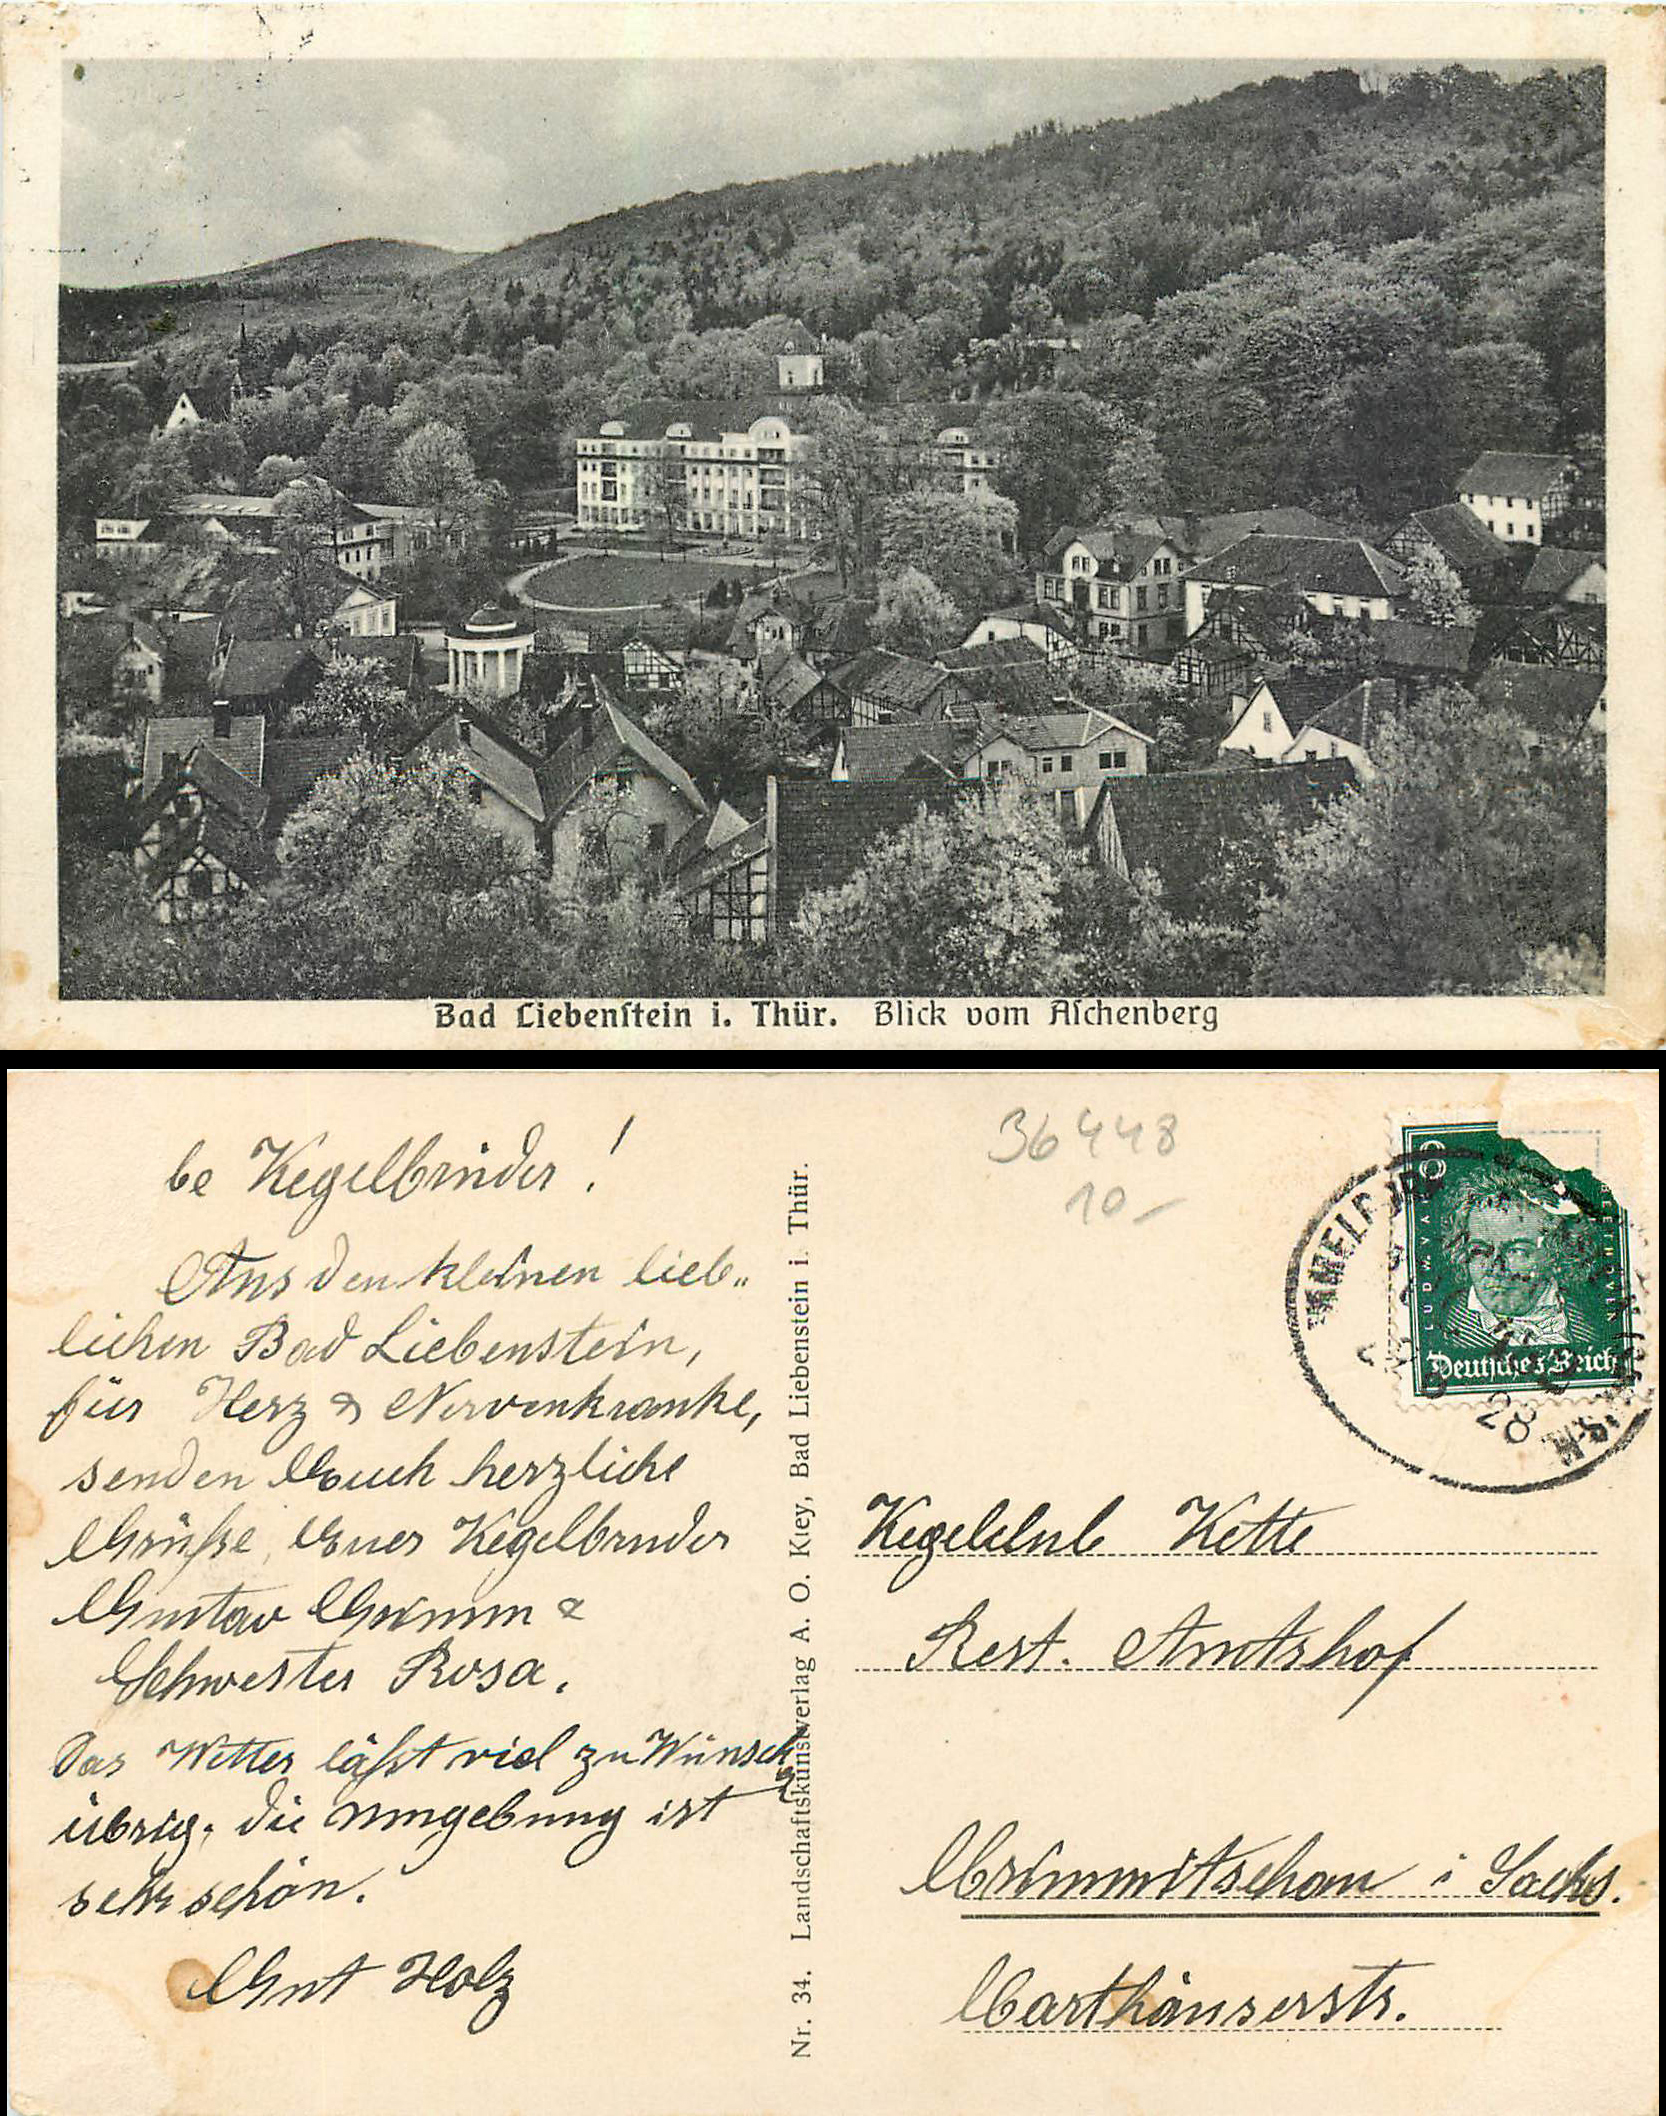 Bad Liebenſtein i. Thür. Blick vom Aſchenberg
be Kegelbrüder!
Aus den kleinen lieb„
lichen Bad Liebenstein,
für Herz & Nervenkranke,
senden Euch herzliche
Grüße, Euer Kegelbruder
Gustav Grimm &
Schwester Rosa.
Das Wetter läßt viel zu Wünsch
übrig. die Umgebung ist
sehr schön.
Gut Holz
Nr. 34. Landschaftskunstverlag A. O. Kley, Bad Liebenstein i. Thür.
36448
10-
8
LUDW. VAN BEETHOVEN
Deutsches Reich
28
Kegelclub Kette
Rest. Amtshof
Crimmitschau i Sachs.
Carthäuserstr.